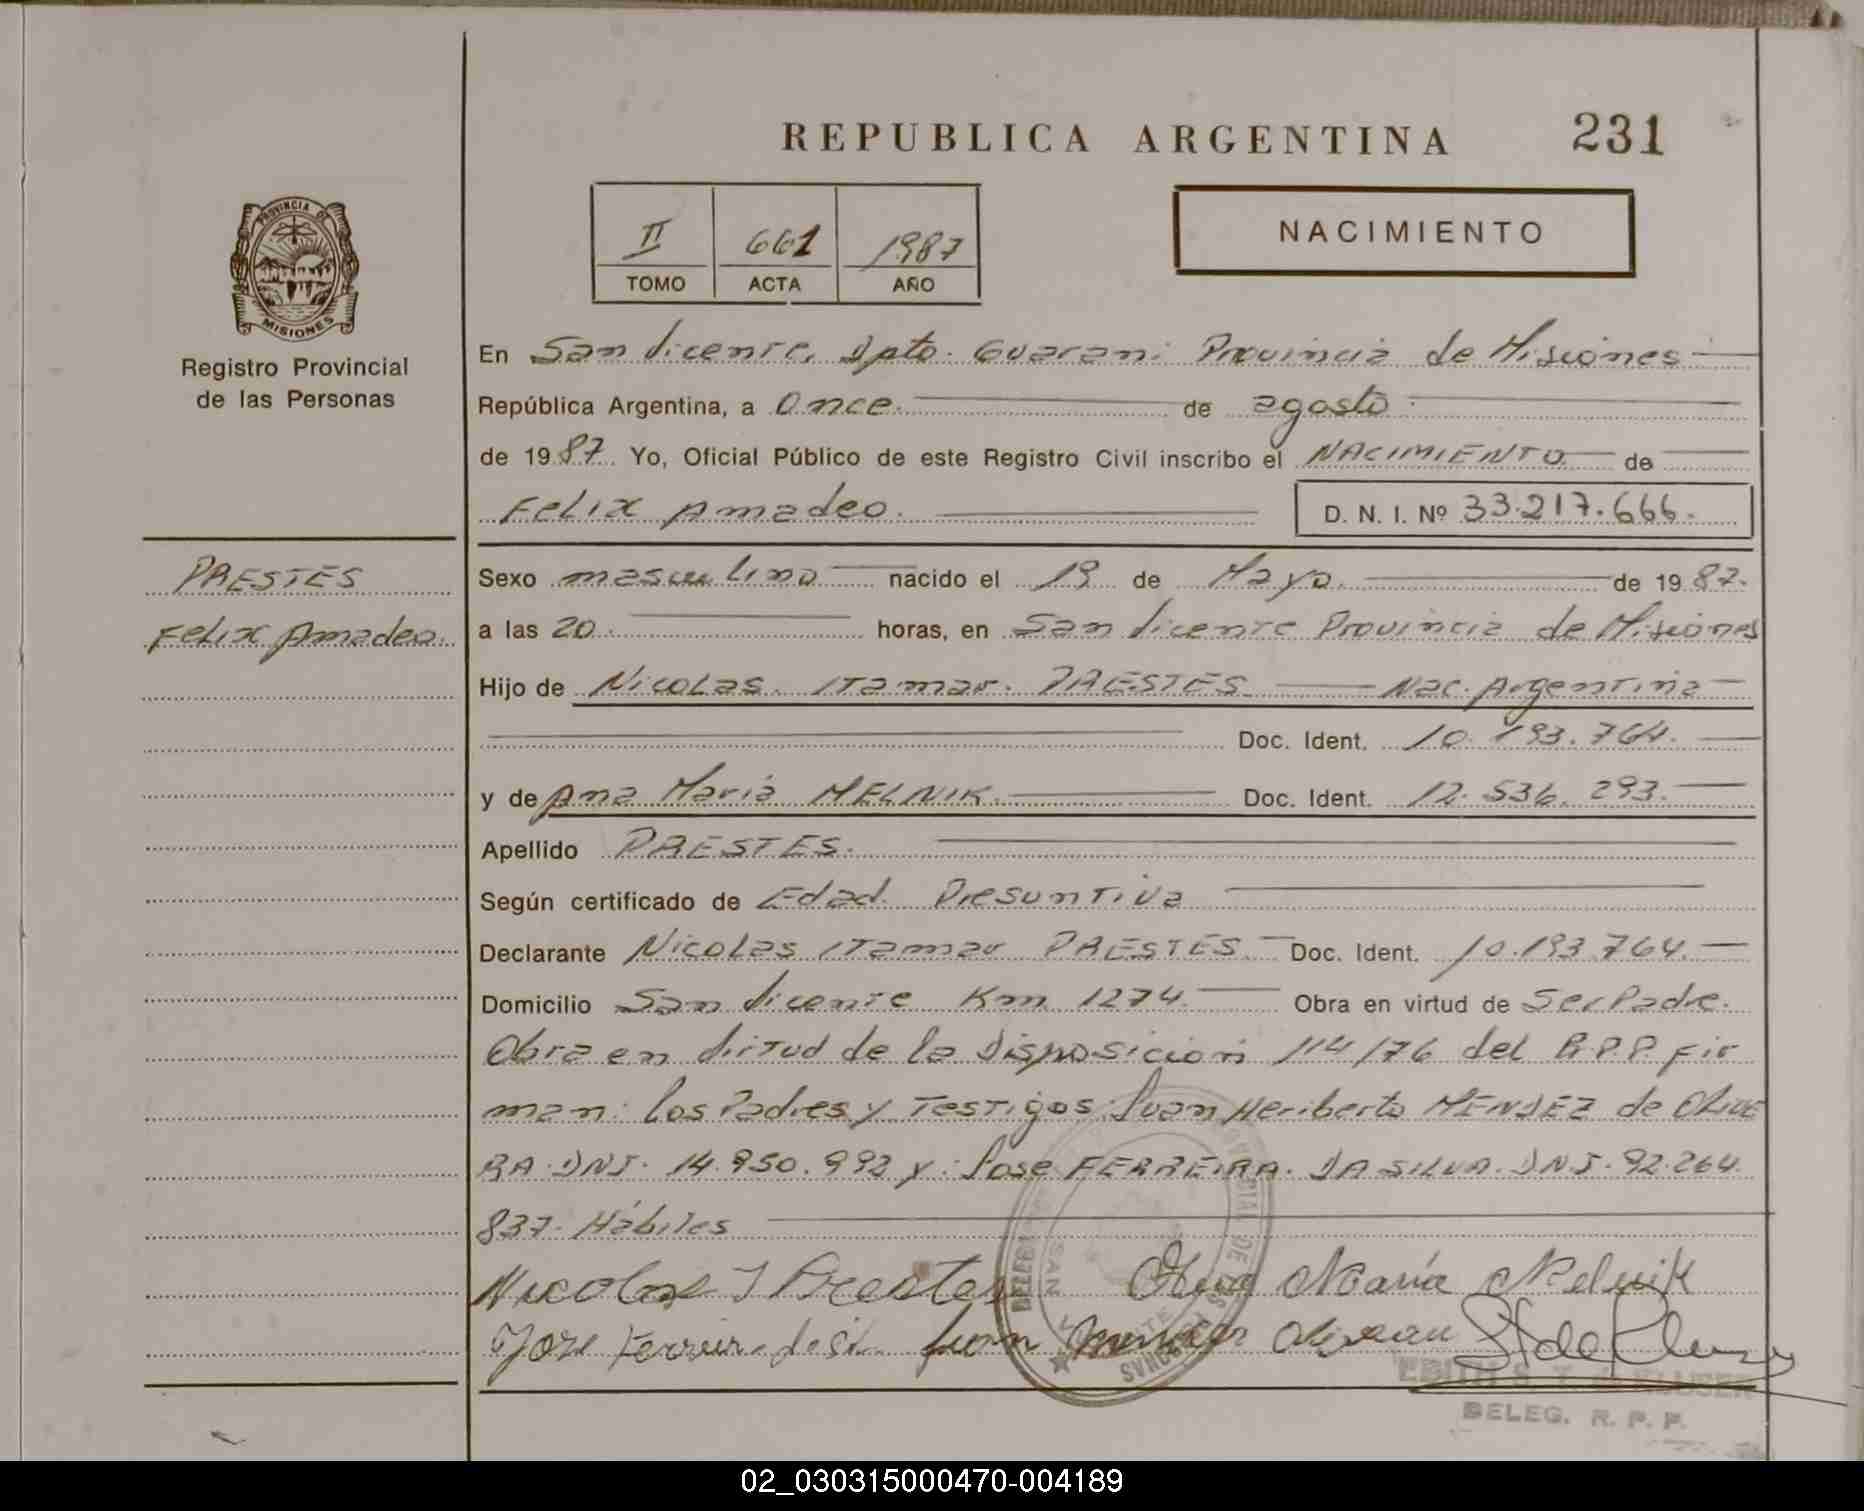 REPUBLICA ARGENTINA 231
PROVINCIA DE
MISIONES
Registro Provincial
de las Personas
II 661 1987
TOMO ACTA AÑO
NACIMIENTO
En San Vicente, Dpto. Guarani Provincia de Misiones
República Argentina, a once. de agosto
de 1987. Yo, Oficial Público de este Registro Civil inscribo el NACIMIENTO de
Felix Amadeo. D. N. I. Nº 33.217.666.
PRESTES
Felix Amadeo.
Sexo masculino nacido el 19 de Mayo. de 1987.
a las 20. horas, en San Vicente Provincia de Misiones
Hijo de Nicolas. Itamar. PRESTES Nac. Argentina
Doc. Ident. 10.193.764.
y de Ana Maria MELNIK. Doc. Ident. 12.536.293.
Apellido PRESTES.
Según certificado de Edad Presuntiva
Declarante Nicolas Itamar PRESTES. Doc. Ident. 10.193.764.
Domicilio San Vicente Km. 1274. Obra en virtud de Ser Padre.
Obra en virtud de la Disposicion 114/76 del R.P.P. fir
man: los Padres y Testigos: Juan Heriberto MENDEZ de OLIVE
RA. DNI. 14.950.992 y: Jose FERREIRA. DA SILVA. DNI. 92.264.
837. Hábiles
Nicolas I Prestes Ana María Melnik
Jose Ferreira da Sil Juan Mendez
EDITH S. T.
DELEG. R. P. P.
02_030315000470-004189